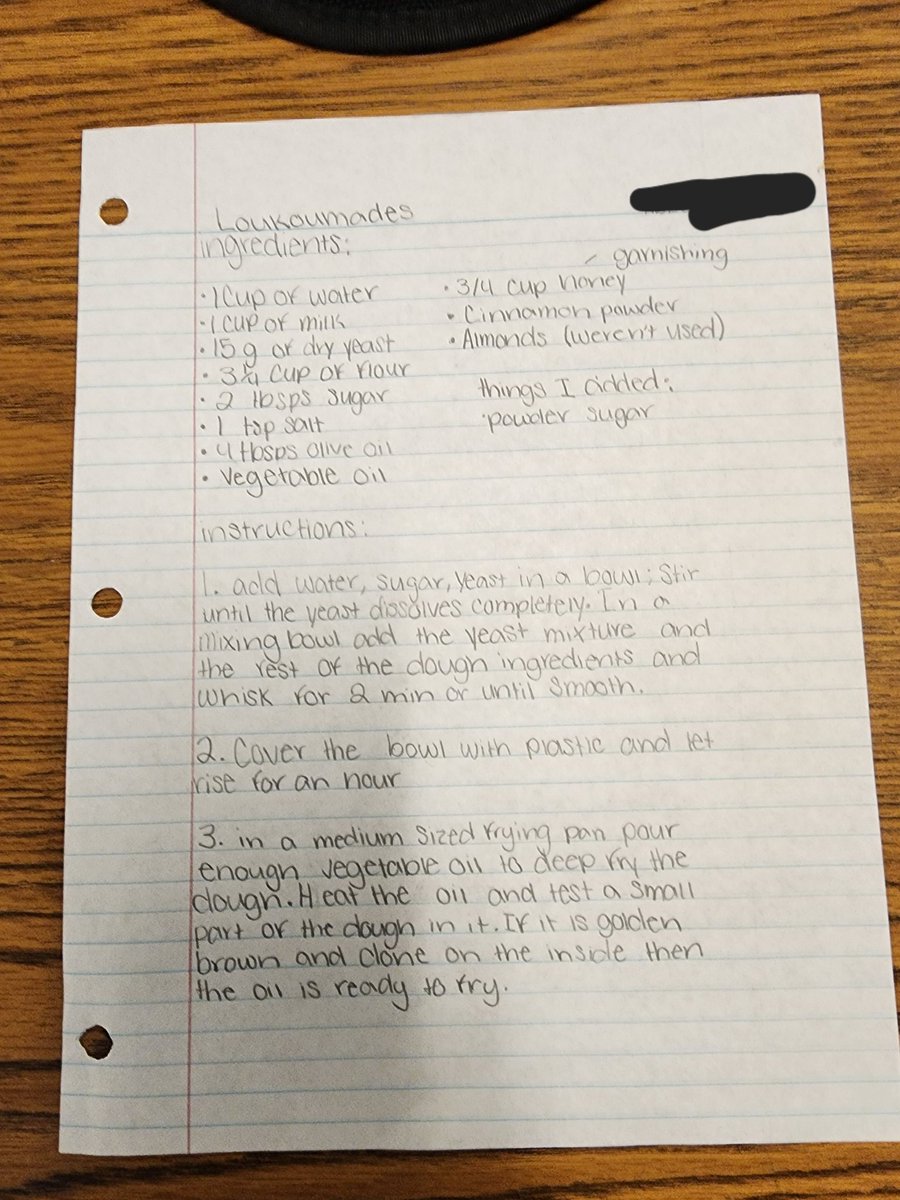 Loukoumades
ingredients:
• 1 Cup of water
• 1 cup of milk
• 15 g of dry yeast
• 3 1/4 Cup of flour
• 2 tbsps sugar
• 1 tsp salt
• 4 tbsps olive oil
• Vegetable oil
- garnishing
• 3/4 cup honey
• Cinnamon powder
• Almonds (weren't used)
things I added:
• powder sugar
instructions:
1. add water, sugar, yeast in a bowl; Stir
until the yeast dissolves completely. In a
mixing bowl add the yeast mixture and
the rest of the dough ingredients and
whisk for 2 min or until smooth.
2. Cover the bowl with plastic and let
rise for an hour
3. in a medium sized frying pan pour
enough vegetable oil to deep fry the
dough. Heat the oil and test a small
part of the dough in it. If it is golden
brown and done on the inside then
the oil is ready to fry.